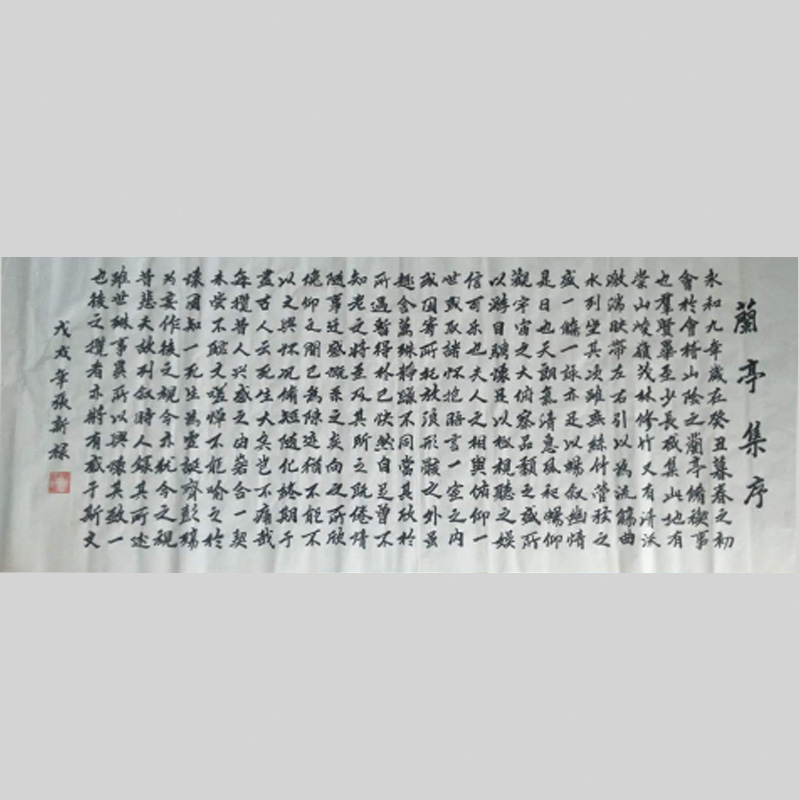 蘭亭集序
永和九年歲在癸丑暮春之初
會於會稽山陰之蘭亭脩禊事
也羣賢畢至少長咸集此地有
崇山峻嶺茂林修竹又有清流
激湍映帶左右引以為流觴曲
水列坐其次雖無絲竹管弦之
盛一觴一詠亦足以暢叙幽情
是日也天朗氣清惠風和暢仰
觀宇宙之大俯察品類之盛所
以遊目騁懷足以極視聽之娛
信可樂也夫人之相與俯仰一
世或取諸怀抱晤言一室之內
或因寄所托放浪形骸之外虽
趣舍萬殊靜躁不同當其欣於
所遇暫得於己快然自足曾不
知老之將至及其所之既倦情
隨事迁感慨系之矣向之所欣
俛仰之間已為陳迹猶不能不
以之興怀况脩短隨化終期于
盡古人云死生大矣豈不痛哉
每攬昔人興感之由若合一契
未嘗不臨文嗟悼不能喻之於
懷固知一死生為虛誕齊彭殤
為妄作後之視今亦猶今之視
昔悲夫故列叙時人錄其所述
雖世殊事異所以興懷其致一
也後之攬者亦將有感于斯文
戊戌年張新祿